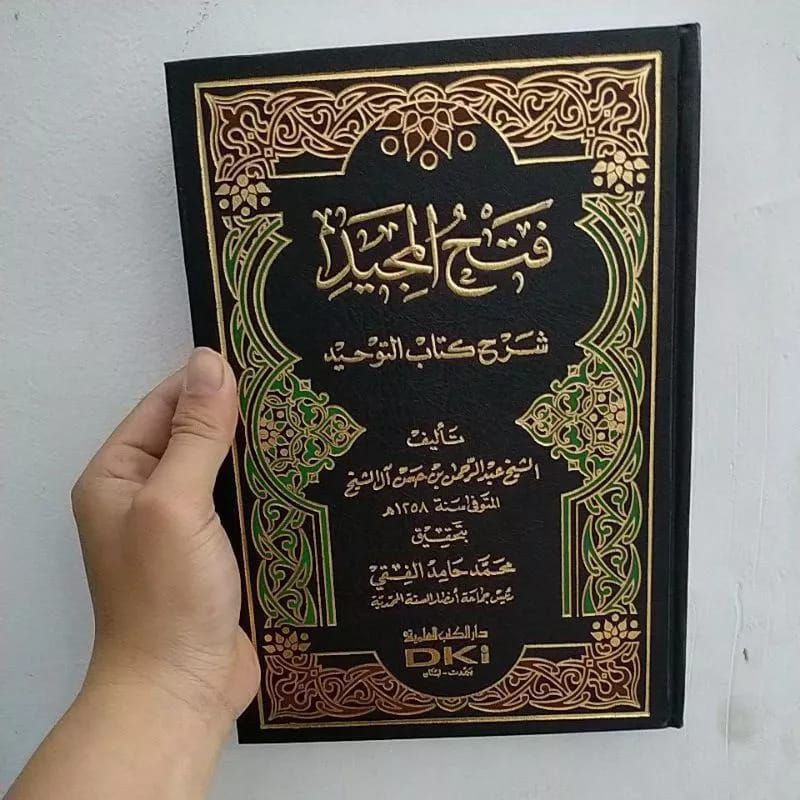 فَتْحُ المَجِيَدِ
شَرْح كِتَاب التَوحيْد
تَأليفْ
الشيخ عَبد الرّحمٰن بْن حسَن آل الشيخ
المتوفى سَنة ١٢٥٨هـ
بتَحقِيْق
محَمَّد حَامِد الفِقي
رئيس جماعة أنصار السنة المحمّدية
دار الكتب العلمية
DKi
بَيْرُوت - لبْنَان